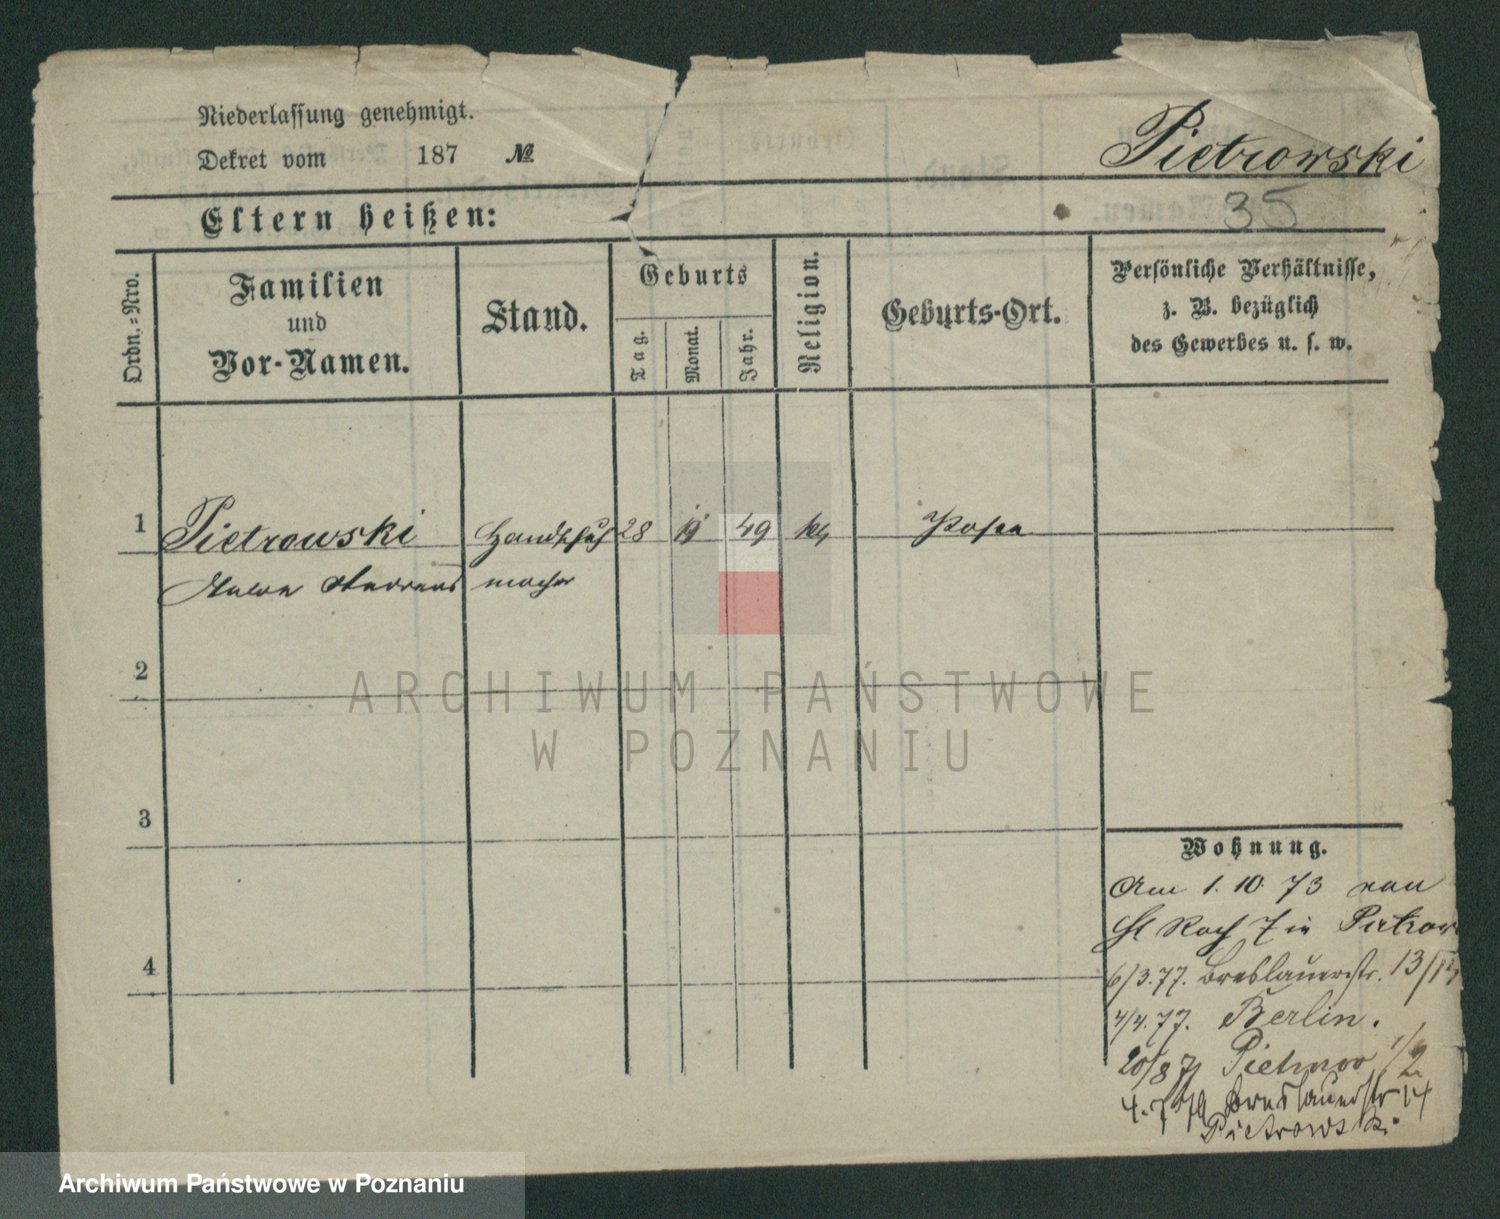 Niederlassung genehmigt.
Dekret vom 187 №
Pietrowski
35
Eltern heißen:
Ordn.=Nro.
Familien
und
Vor-Namen.
Stand.
Geburts
Tag.
Monat.
Jahr.
Religion.
Geburts-Ort.
Persönliche Verhältnisse,
z. B. bezüglich
des Gewerbes u. s. w.
1 Pietrowski Handschuh 28 49 Posen
Andreas macher
2
ARCHIWUM PAŃSTWOWE
W POZNANIU
3
Wohnung.
Am 1. 10. 73 von
St Roch 7 in
4
6/3.77. Breslauerstr. 13/14
4/4.77. Berlin.
20/8 1/2
4.7 79 Breslauerstr 14
Pietrowski
Archiwum Państwowe w Poznaniu